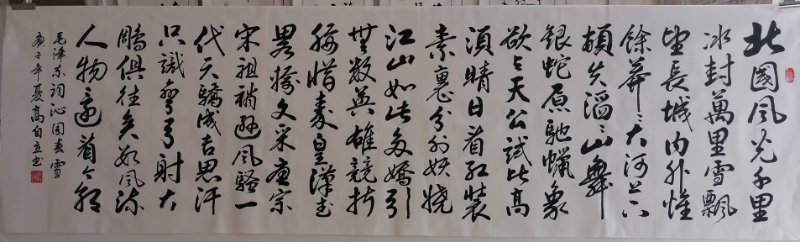 北國風光千里
冰封萬里雪飄
望長城内外惟
餘莽々大河上下
頓失滔々山舞
銀蛇原馳蠟象
欲与天公試比高
須晴日看紅裝
素裹分外妖嬈
江山如此多嬌引
無數英雄競折
腰惜秦皇漢武
略輸文采唐宗
宋祖稍遜風騷一
代天驕成吉思汗
只識彎弓射大
鵰俱往矣數風流
人物還看今朝
毛澤东詞沁园春雪
庚子年夏高自立书